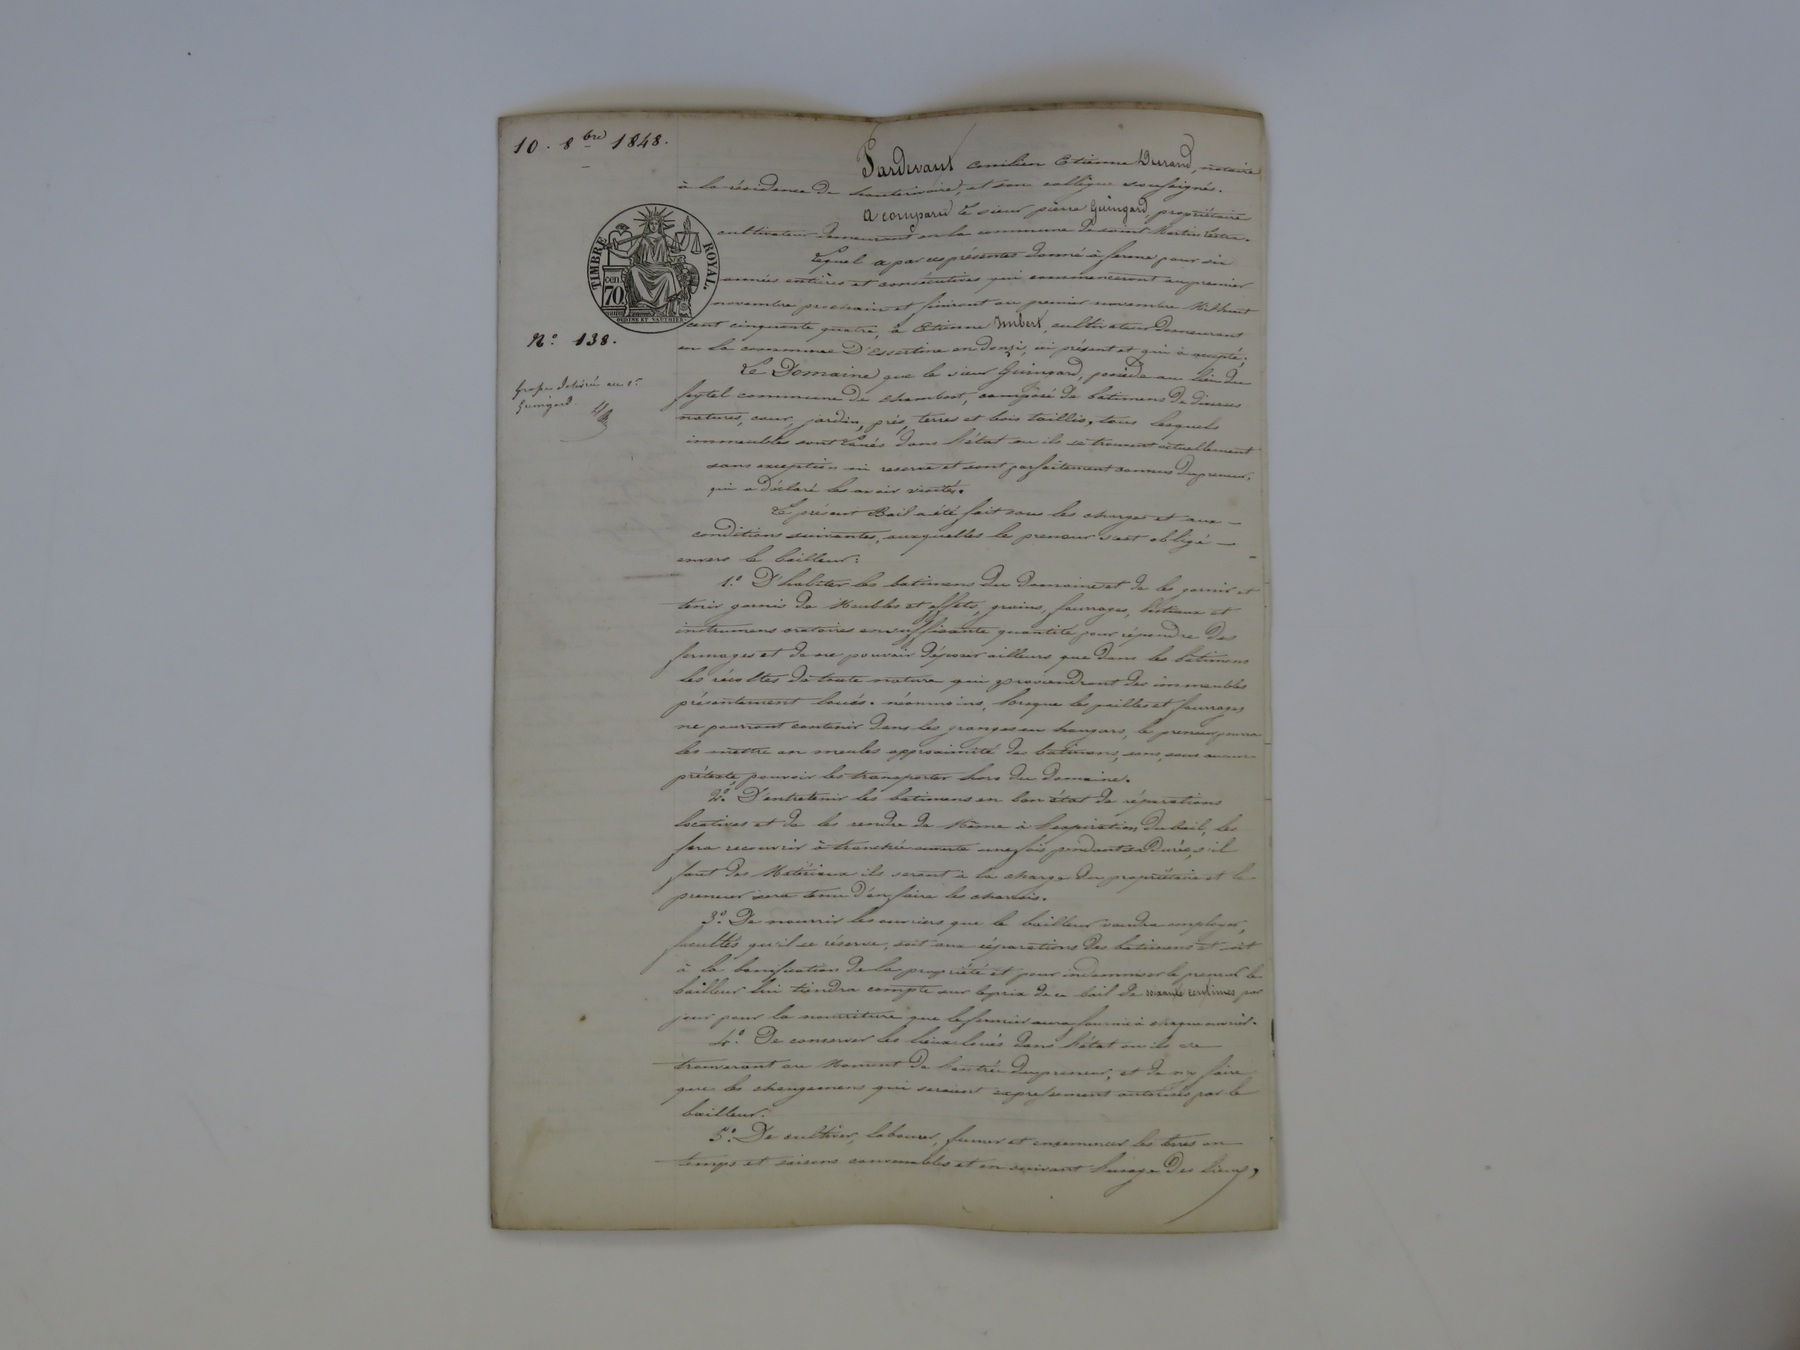 10. 8bre 1848.
Pardevant Emilien Etienne Durand, notaire
à la résidence de hauterivoire, et son collègue soussignés.
A comparu le sieur pierre Guingard, propriétaire
cultivateur demeurant en la commune de saint Martin Lestra.
TIMBRE ROYAL.
cen 70
Lequel a par ces présentes donné à ferme pour six
années entières et consécutives qui commenceront au premier
novembre prochain et finiront au premier novembre Milhuit
cent cinquante quatre, à Etienne Imbert, cultivateur demeurant
N.o 138.
en la commune D'Essertine en donzi, ici présent et qui a accepté;
Le Domaine que le sieur Guingard, possède au lieu du
Grosse délivrée au sr.
Guingard.
feytel commune de chambost, composé de batimens de diverses
natures, cour, jardin, prés, terres et bois taillis, tous lesquels
immeubles sont loués dans l'état ou ils se trouvent actuellement
sans exception ni reserve et sont parfaitement connus du preneur,
qui a déclaré les avoir visités.
Le présent Bail a été fait sous les charges et aux
conditions suivantes, auxquelles le preneur s'est obligé
envers le bailleur:
1.o D'habiter les batimens du domaine et de les garnir et
tenir garnis de Meubles et effets, grains, fourrages, bestiaux et
instrumens aratoires en suffisante quantité pour répondre des
fermages et de ne pouvoir déposer ailleurs que dans les batimens
les récoltes de toute nature qui proviendront des immeubles
présentement loués. néanmoins, lorsque les pailles et fourrages
ne pourront contenir dans les granges ou hangars, le preneur pourra
les mettre en meules approximité des batimens, sans, sous aucun
prétexte, pouvoir les transporter hors du domaine.
2.o D'entretenir les batimens en bon état de réparations
locatives et de les rendre de Même à l'expiration du bail, les
fera recouvrir à tranchée ouverte une fois pendant sa durée, s'il
faut des Matériaux ils seront à la charge du propriétaire et le
preneur sera tenu d'en faire les charrois.
3.o De nourrir les ouvriers que le bailleur voudra employer,
facultés qu'il se réserve, soit aux réparations des batimens et soit
à la bonification de la propriété et pour indemniser le preneur le
bailleur lui tiendra compte sur le prix de ce bail de centimes par
jour pour la nourriture que le fermier aura fournie à chaque ouvrier.
4.o De conserver les lieux loués dans l'état ou ils se
trouveront au Moment de l'entrée du preneur, et de n'y faire
que les changemens qui seraient expressement autorisés par le
bailleur.
5.o De cultiver, labourer, fumer et ensemencer les terres en
temps et saisons convenables et en suivant l'usage des lieux,